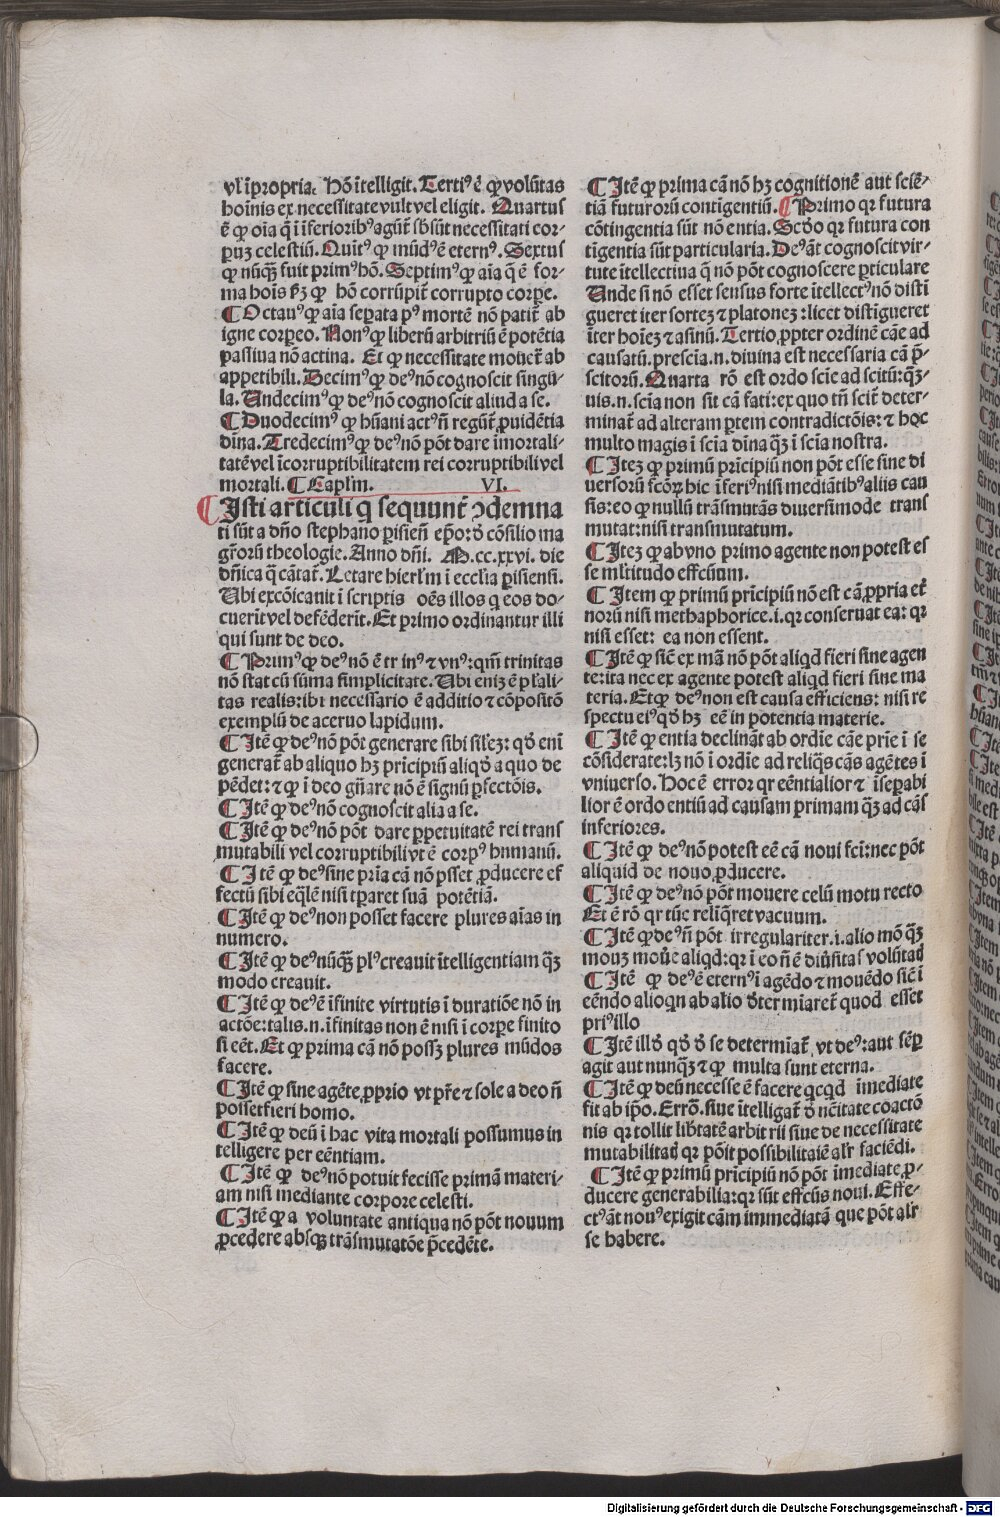 vl' īpropria. Hō ītelligit. Terti⁹ ē ꝙ volūtas
hoīnis ex necessitate vult vel eligit. Quartus
ē ꝙ oīa q̄ ī īferiorib⁹ agūt̄ sbsūt necessitati cor-
puȝ celestiū. Quīt⁹ ꝙ mūd⁹ ē etern⁹. Sextus
ꝙ nūqȝ fuit prim⁹ hō. Septim⁹ ꝙ aīa q̄ ē for-
ma hoīs ꝙ hō corrūpit̄ corrupto corꝑe.
¶ Octau⁹ ꝙ aīaseꝑata p⁹ mortē nō patit̄ ab
igne corꝑeo. Non⁹ ꝙ liberū arbitriū ē potētia
passiua nō actiua. Et ꝙ necessitate mouet̄ ab
appetibili. Decim⁹ ꝙ de⁹ nō cognoscit singu-
la. Undecim⁹ ꝙ de⁹ nō cognoscit aliud a se.
¶ Duodecim⁹ ꝙ hūani act⁹ n̄ regūt̄ ꝓuidētia
dīna. Tredecim⁹ ꝙ de⁹ nō pōt dare īmortali-
tatē vel īcorruptibilitatem rei corruptibili vel
mortali. ¶ Capl'm. VI.
¶ Isti articuli q̄ sequunt̄ ↄdemna
ti sūt a dn̄o stephano ꝑisien̄ ep̄o: d' cōsilio ma
gr̄orū theologie. Anno dn̄i. M.cc.xxvi. die
dn̄ica q̄ cātat̄. Letare hierl'm ī eccl'ia ꝑisiensi.
Ubi excōicauit ī scriptis oēs illos q̄ eos do-
cuerīt vel defēderīt. Et primo ordinantur illi
qui sunt de deo.
¶ Prim⁹ ꝙ de⁹ nō ē trin⁹ ⁊ vn⁹: qm̄ trinitas
nō stat cū sūma simplicitate. Ubi enī ē pl'ali-
tas realis: ibi necessario ē additio ⁊ cōpositō
exemplū de aceruo lapidum.
¶ Itē ꝙ de⁹ nō pōt generare sibi sil'eȝ: qd' enī
generat̄ ab aliquo hȝ prīcipiū aliqd' a quo de
pēdet: ⁊ ꝙ ī deo gn̄are nō ē signū ꝑfectōis.
¶ Itē ꝙ de⁹ nō cognoscit alia a se.
¶ Itē ꝙ de⁹ nō pōt dare ꝑpetuitatē rei trans
mutabili vel corruptibili vt ē corp⁹ humanū.
¶ Itē ꝙ de⁹ sine prīa cā nō pōsset ꝓducere ef
fectū sibi eq̄lē nisi tꝑaret suā potētiā.
¶ Itē ꝙ de⁹ non posset facere plures aīas in
numero.
¶ Itē ꝙ de⁹ nūqȝ pl⁹ creauit ītelligentiam qȝ
modo creauit.
¶ Itē ꝙ de⁹ ē īfinite virtutis ī duratiōe nō in
actōe: talis.n. īfinitas non ē nisi ī corꝑe finito
si eēt. Et ꝙ prima cā nō possȝ plures mūdos
facere.
¶ Itē ꝙ sine agēte ꝓprio vt pr̄e ⁊ sole a deo n̄
posset fieri homo.
¶ Itē ꝙ deū ī hac vita mortali possumus in
telligere per eēntiam.
¶ Itē ꝙ de⁹ nō potuit fecisse primā materi-
am nisi mediante corpore celesti.
¶ Itē ꝙ a voluntate antiqua nō pōt nouum
ꝓcedere absqȝ trāsmutatōe p̄cedēte.
¶ Itē ꝙ prima cā nō hȝ cognitionē aut sciē-
tiā futurorū contīgentiū. ¶ Primo qꝛ futura
cōtingentia sūt nō entia. Scdo qꝛ futura con
tīgentia sūt particularia. De⁹ āt cognoscit vir-
tute ītellectiua q̄ nō pōt cognoscere ꝑticulare
Unde si nō esset sensus forte ītellect⁹ nō distī
gueret iter sortez ⁊ platonez: licet distīgueret
īter hoīez ⁊ asinū. Tertio ꝓpter ordinē cāe ad
causatū. prescīa.n. diuina est necessaria cā p̄-
scitorū. Quarta rō est ordo scīe ad scitū: qȝ-
uis.n. scīa non sit cā fati: ex quo tn̄ scit̄ deter-
minat̄ ad alteram ꝑtem contradictōis: ⁊ hoc
multo magis ī scīa dīna qȝ ī scīa nostra.
¶ Iteȝ ꝙ primū prīcipiū non pōt esse sine di
uersorū fcōꝝ hic īferi⁹ nisi mediātib⁹ aliis cau
sis: eo ꝙ nullū trāsmutās diuersimode trans
mutat: nisi transmutatum.
¶ Iteȝ ꝙ ab vno primo agente non potest es
se ml'titudo effcūum.
¶ Item ꝙ primū prīcipiū nō est cā ꝓpria et̄
norū nisi methaphorice.i. qꝛ conseruat ea: qꝛ
nisi esset: ea non essent.
¶ Itē ꝙ sic̄ ex mā nō pōt aliqd fieri sine agen
te: ita nec ex agente potest aliqd fieri sine ma
teria. Et ꝙ de⁹ non est causa efficiens: nisi re
spectu ei⁹ qd' hȝ eē in potentia materie.
¶ Itē ꝙ entia declināt ab ordīe cāe prīe ī se
cōsiderate: lȝ nō ī ordīe ad reliq̄s cās agētes ī
vniuerso. Hoc ē error qꝛ eēntialior ⁊ īseꝑabi
lior ē ordo entiū ad causam primam qȝ ad cās
inferiores.
¶ Itē ꝙ de⁹ nō potest eē cā noui fci: nec pōt
aliquid de nouo ꝓducere.
¶ Itē ꝙ de⁹ nō pōt mouere celū motu recto
Et ē rō qꝛ tūc relīq̄ret vacuum.
¶ Itē ꝙ de⁹ n̄ pōt irregulariter.i. alio mō qȝ
mouȝ mouē aliqd: qꝛ ī eo n̄ ē diu̇sitas volūtatū
¶ Itē ꝙ de⁹ ē etern⁹ ī agēdo ⁊ mouēdo sic̄ ī
eēndo alioqn ab alio d'termīaret̄ quod esset
pri⁹ illo
¶ Itē illd' qd' d' se determīat̄, vt de⁹: aut semꝑ
agit aut nunqȝ ⁊ ꝙ multa sunt eterna.
¶ Itē ꝙ deū necesse ē facere qcqd īmediate
fit ab ip̄o. Errō. siue ītelligat̄ d' nc̄itate coactō
nis qꝛ tollit lib̄tatē arbitrii siue de necessitate
mutabilitatꝭ qꝛ pōit possibilitatē al'r faciēdi.
¶ Itē ꝙ primū prīcipiū nō pōt īmediate ꝓ-
ducere generabilia: qꝛ sūt effcūs noui. Effe-
ct⁹ āt nou⁹ exigit cām immediatā que pōt al'r
se habere.
Digitalisierung gefördert durch die Deutsche Forschungsgemeinschaft - DFG